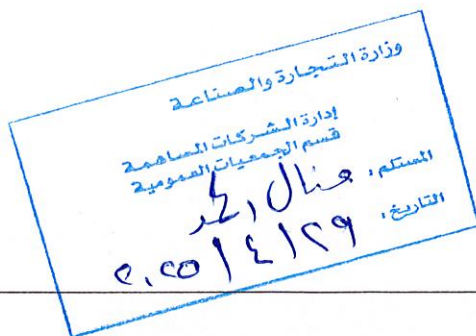 وزارة التجارة والصناعة
إدارة الشركات المساهمة
قسم الجمعيات العمومية
المستلم، منال
التاريخ، ٢٠٢٥/٤/٢٩